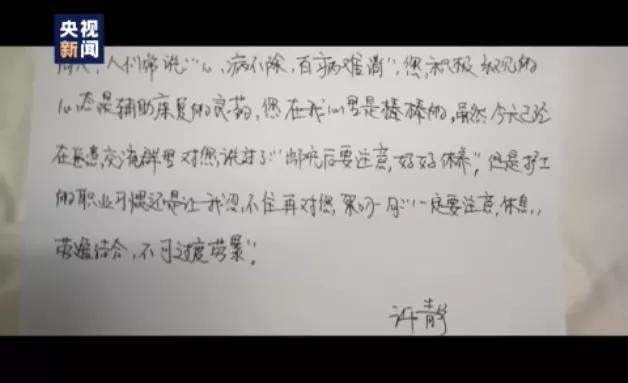 央视
新闻
人们常说“心病不除,百病难消”,您积极乐观的
心态是辅助康复的良药,您在我心里是棒棒的,虽然今天已经
在医患交流群里对您说过了“出院后要注意,好好休养”,但是护士
的职业习惯还是让我忍不住再对您,累一句:“一定要注意,休息,
劳逸结合,不可过度劳累”。
许静